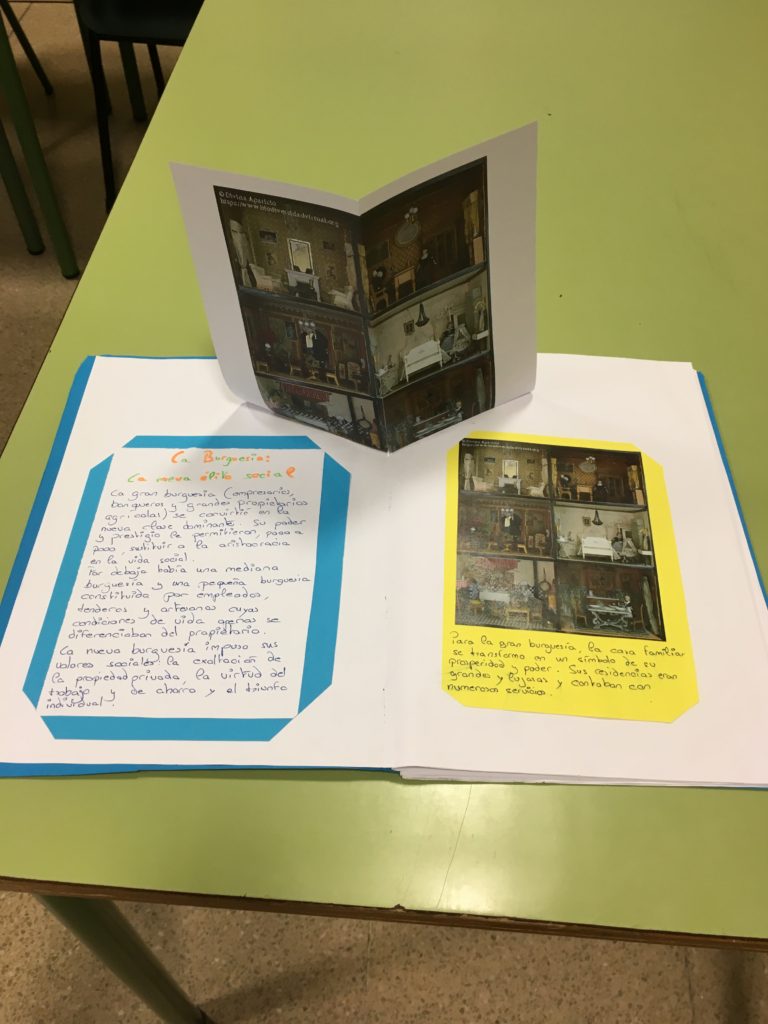 © Divina Aparicio
https://www.biodiversidadvirtual.org
La Burguesia:
La nueva élite social
La gran burguesía (empresarios,
banqueros y grandes propietarios
agrícolas) se convirtió en la
nueva clase dominante. Su poder
y prestigio le permitieron, paso a
paso, sustituir a la aristocracia
en la vida social.
Por debajo había una mediana
burguesía y una pequeña burguesía
constituida por empleados,
tenderos y artesanos cuyas
condiciones de vida apenas se
diferenciaban del propietario.
La nueva burguesía impuso sus
valores sociales: la exaltación de
la propiedad privada, la virtud del
trabajo y de ahorro y el triunfo
individual.
Para la gran burguesía, la casa familiar
se transformo en un símbolo de su
prosperidad y poder. Sus residencias eran
grandes y lujosas y contaban con
numerosos servicios.